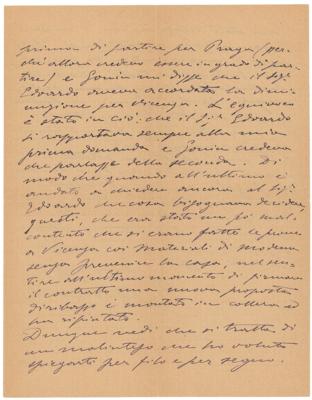 prima di partire per Praga (per-
chè allora credevo essere in grado di par-
tire) e Gonin mi disse che il Sigr.
Edoardo aveva accordata la dimi-
nuzione per Vicenza. L'equivoco
è stato in ciò che il Sigr. Edoardo
si rapportava sempre alla mia
prima domanda e Gonin credeva
che parlasse della seconda. Di
modo che quando all'ultimo è
andato a chiedere ancora al Sigr.
Edoardo che cosa bisognava decidere,
questi, che era stato un po' mal-
contento che si erano fatte le prove
a Vicenza coi materiali di Modena
senza prevenire la casa, nel sen-
tire all'ultimo momento di firmare
il contratto una nuova proposta
di ribasso è montato in collera ed
ha rifiutato.
Dunque vedi che si tratta di
un malinteso che ho voluto
spiegarti per filo e per segno.